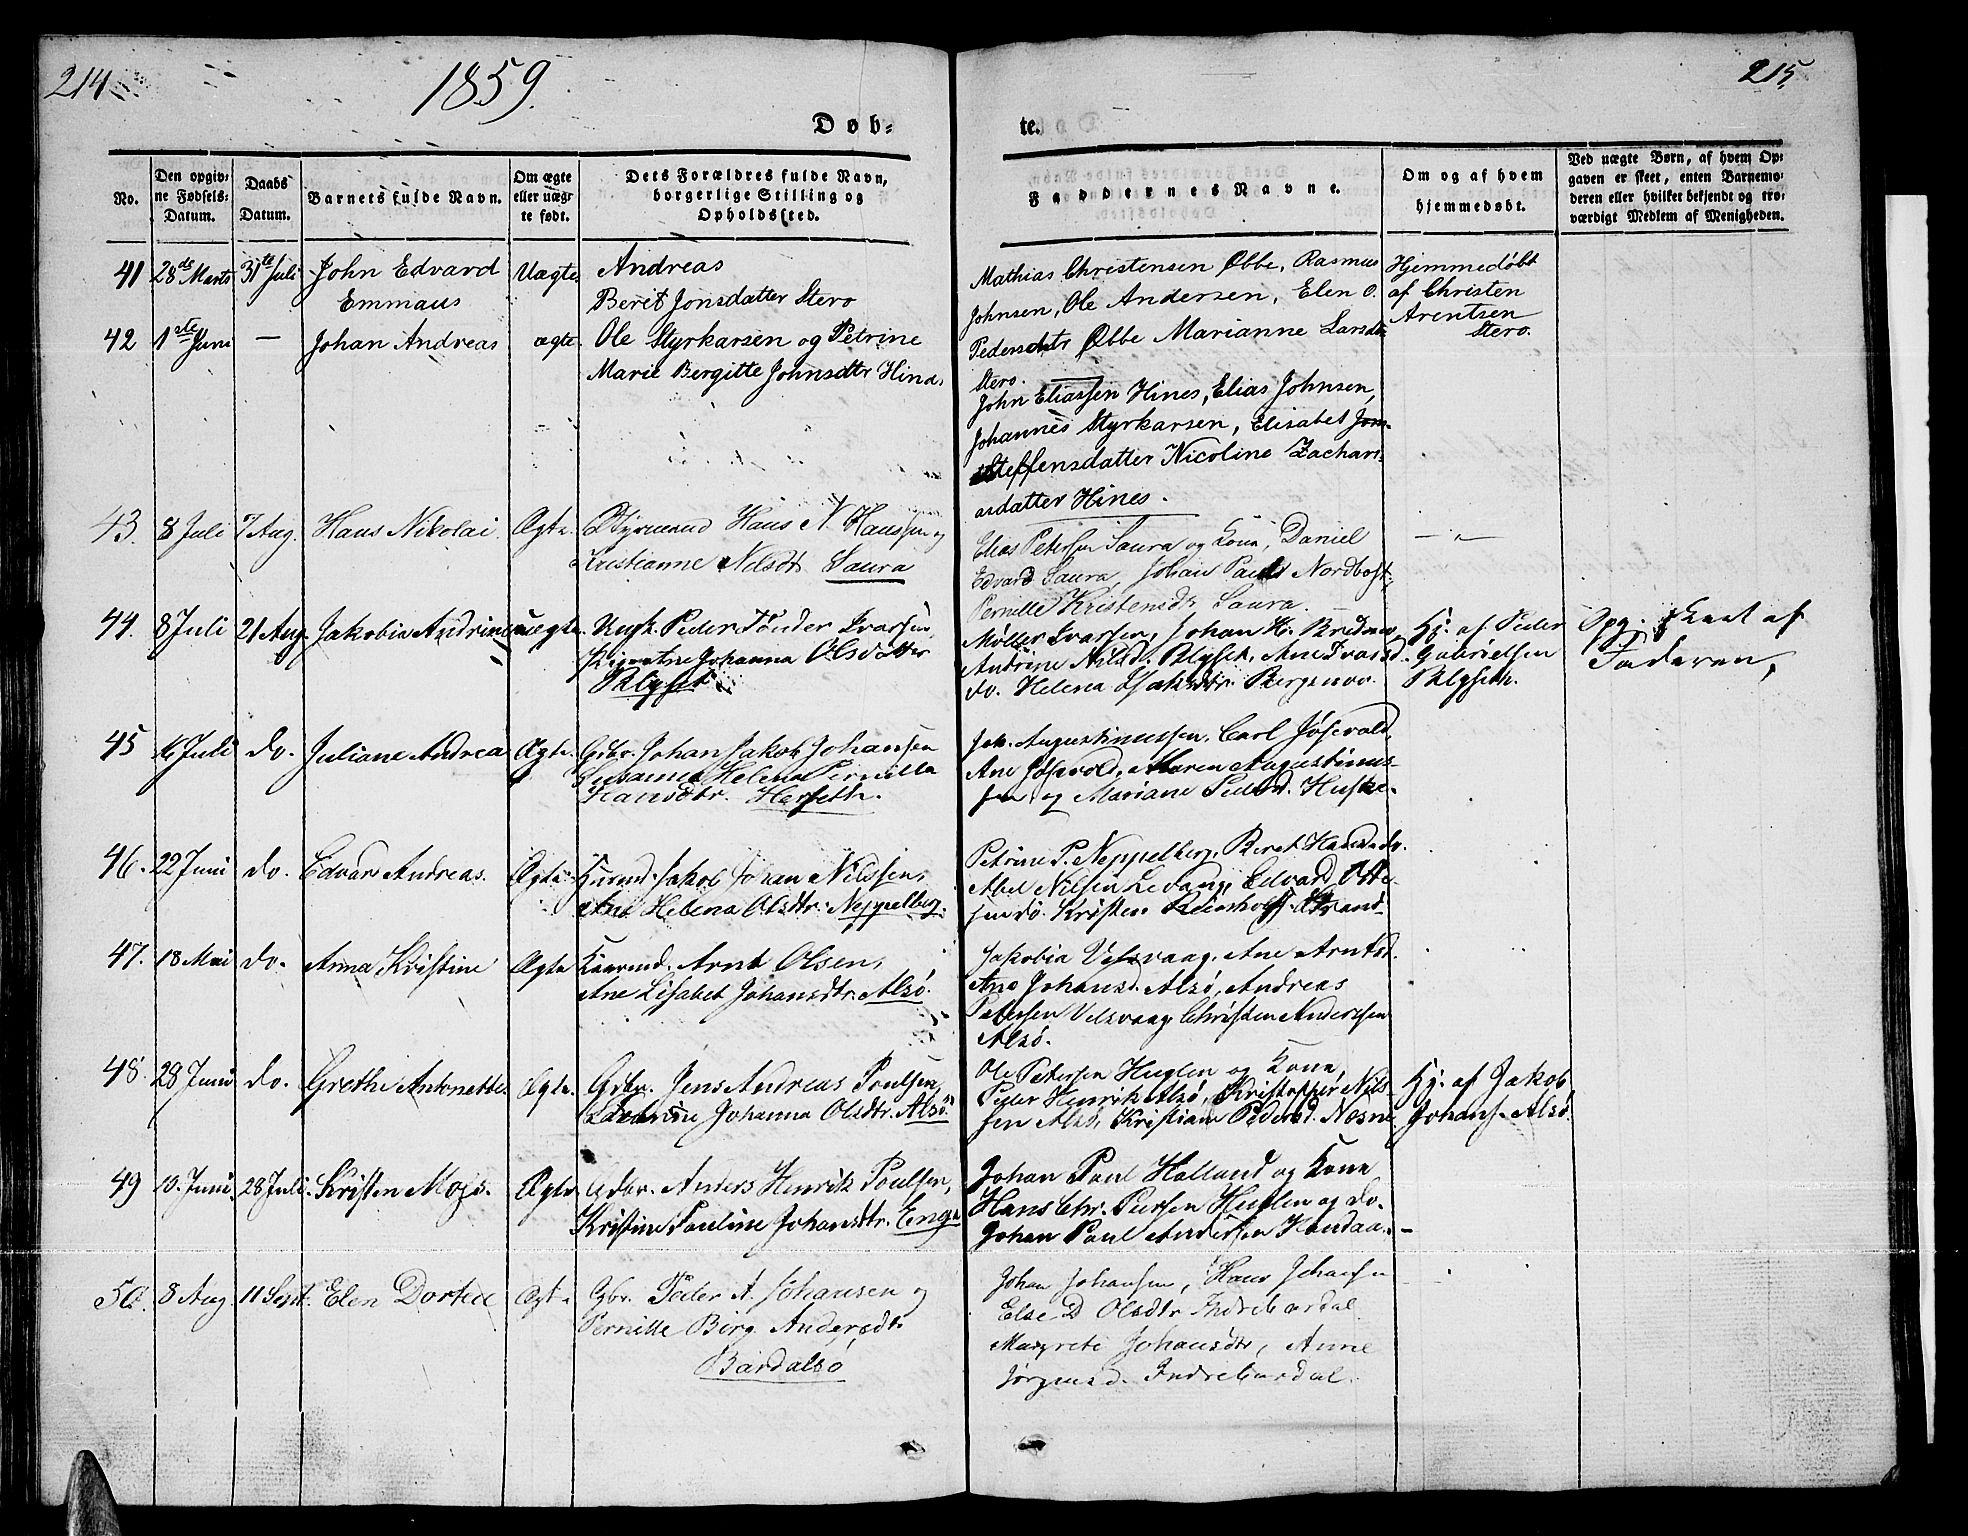 214
1859.
215.
Døb-
te.
No.
Den opgiv-
ne Fødsels-
Datum.
Daabs
Datum.
Barnets fulde Navn.
Om ægte
eller uæg-
te født.
Dets Forældres fulde Navn,
borgerlige Stilling og
Opholdssted.
Faddernes Navne.
Om og af hvem
hjemmedøbt.
Ved uægte Børn, af hvem Op-
gaven er skeet, enten Barnemo-
deren eller hvilket bekjendt og tro-
værdigt Medlem af Menigheden.
41 28de Marts 31te Juli John Edvard Uægte Andreas
Emmaus Berit Jonsdatter Stero
Mathias Christensen Øbbe, Rasmus
Johnsen, Ole Andersen, Elen O.
Pedersdtr Øbbe Marianne Larsdtr
Stero.
Hjemmedøbt
af Christen
Arentsen
Stero.
42 1ste Juni — Johan Andreas ægte Ole Styrkarsen og Petrine
Marie Bergitte Johnsdtr Hines
John Eliassen Hines, Elias Johnsen,
Johannes Styrkarsen, Elisabet
Steffensdatter Nicoline Zachari-
asdatter Hines.
43. 8 Juli 7 Aug. Hans Nikolai Ægte Styrmand Hans N. Hanssen og
Kristianne Nilsdtr Saura
Elias Petersen Saura og Kone, Daniel
Edvard Saura, Johan Pauls Nordbost,
Pernille Kristensdtr Saura.
— " —
44. 8 Juli 21 Aug. Jakobia Andrine uægte Ungk. Peder Tønder Ivarsen,
Pige Ane Johanna Olsdatter
Plyset
Møller Ivarsen, Johan H.
Andrine Nilsd. Plyset, Ane Ivarsd.
do. Helena Isaksdtr.
Hj. af Peder
Gabrielsen
Plyseth.
Opg. skeet af
Faderen,
45 16 Juli do. Juliane Andrea Ægte Gdbr. Johan Jakob Johansen
Susanna Helena Pernilla
Hansdtr. Herseth.
Joh. Augustinussen, Carl Jøsevold,
Ane Jøsevold, Maren Augustinus-
sen og Mariane Pedersd. Huske.
46. 22 Juni do. Edvard Andreas. Ægte Jakob Johan Nilssen,
Ane Helena Olsdtr. Neppelberg.
Petrine P. Neppelberg, Beret Hansd. do.
Abel Nilsen Levang, Edvard Otte-
sen do. Kristen Reinholdts. Strand
47. 18 Mai do. Anna Kristine Ægte Arnt Olsen,
Ane Lisabet Johansdtr. Alsø.
Jakobia Velsvaag, Ane Arntsd.
Ane Johansd. Alsø, Andreas
Petersen Velsvaag, Christen Andersen
Alsø.
48. 28 Juni do. Grethe Antonette Ægte. Gdbr. Jens Andreas Poulsen,
Johanna Olsdtr. Alsø
Ole Petersen Huglen og Kone,
Peder Henrik Alsø, Kristopher Nils-
sen Alsø, Kristiane Pedersd. Nesne
Hj. af Jakob
Johans. Alsø.
49 10. Juni 28 Juli. Kristen Mojs. Ægte Gdbr. Anders Henrik Poulsen,
Kristine Pauline Johansdtr. Enge
Johan Paul Holland og Kone
Hans Chr. Peersen Huglen og do.
Johan Paul Andersen Handaa. —
50. 8 Aug 11 Sept. Elen Dortea Ægte Gbr. Peder A. Johansen og
Pernille Birg. Andersdtr.
Bardalsø
Johan Johansen, Hans Johansen
Else D Olsdtr Indrebardal
Margrete Johansdtr, Anne
Jørgensd. Indrebardal.